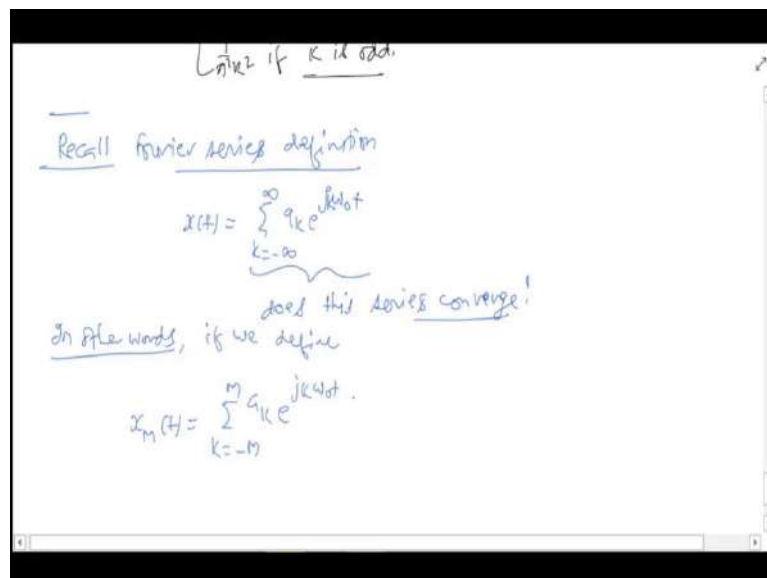 if k is odd.
Recall Fourier series definition
x(t) = ∑_{k=-∞}^{∞} a_k e^{jkω_0t}
does this series converge!
In other words, if we define
x_M(t) = ∑_{k=-M}^{M} a_k e^{jkω_0t}.